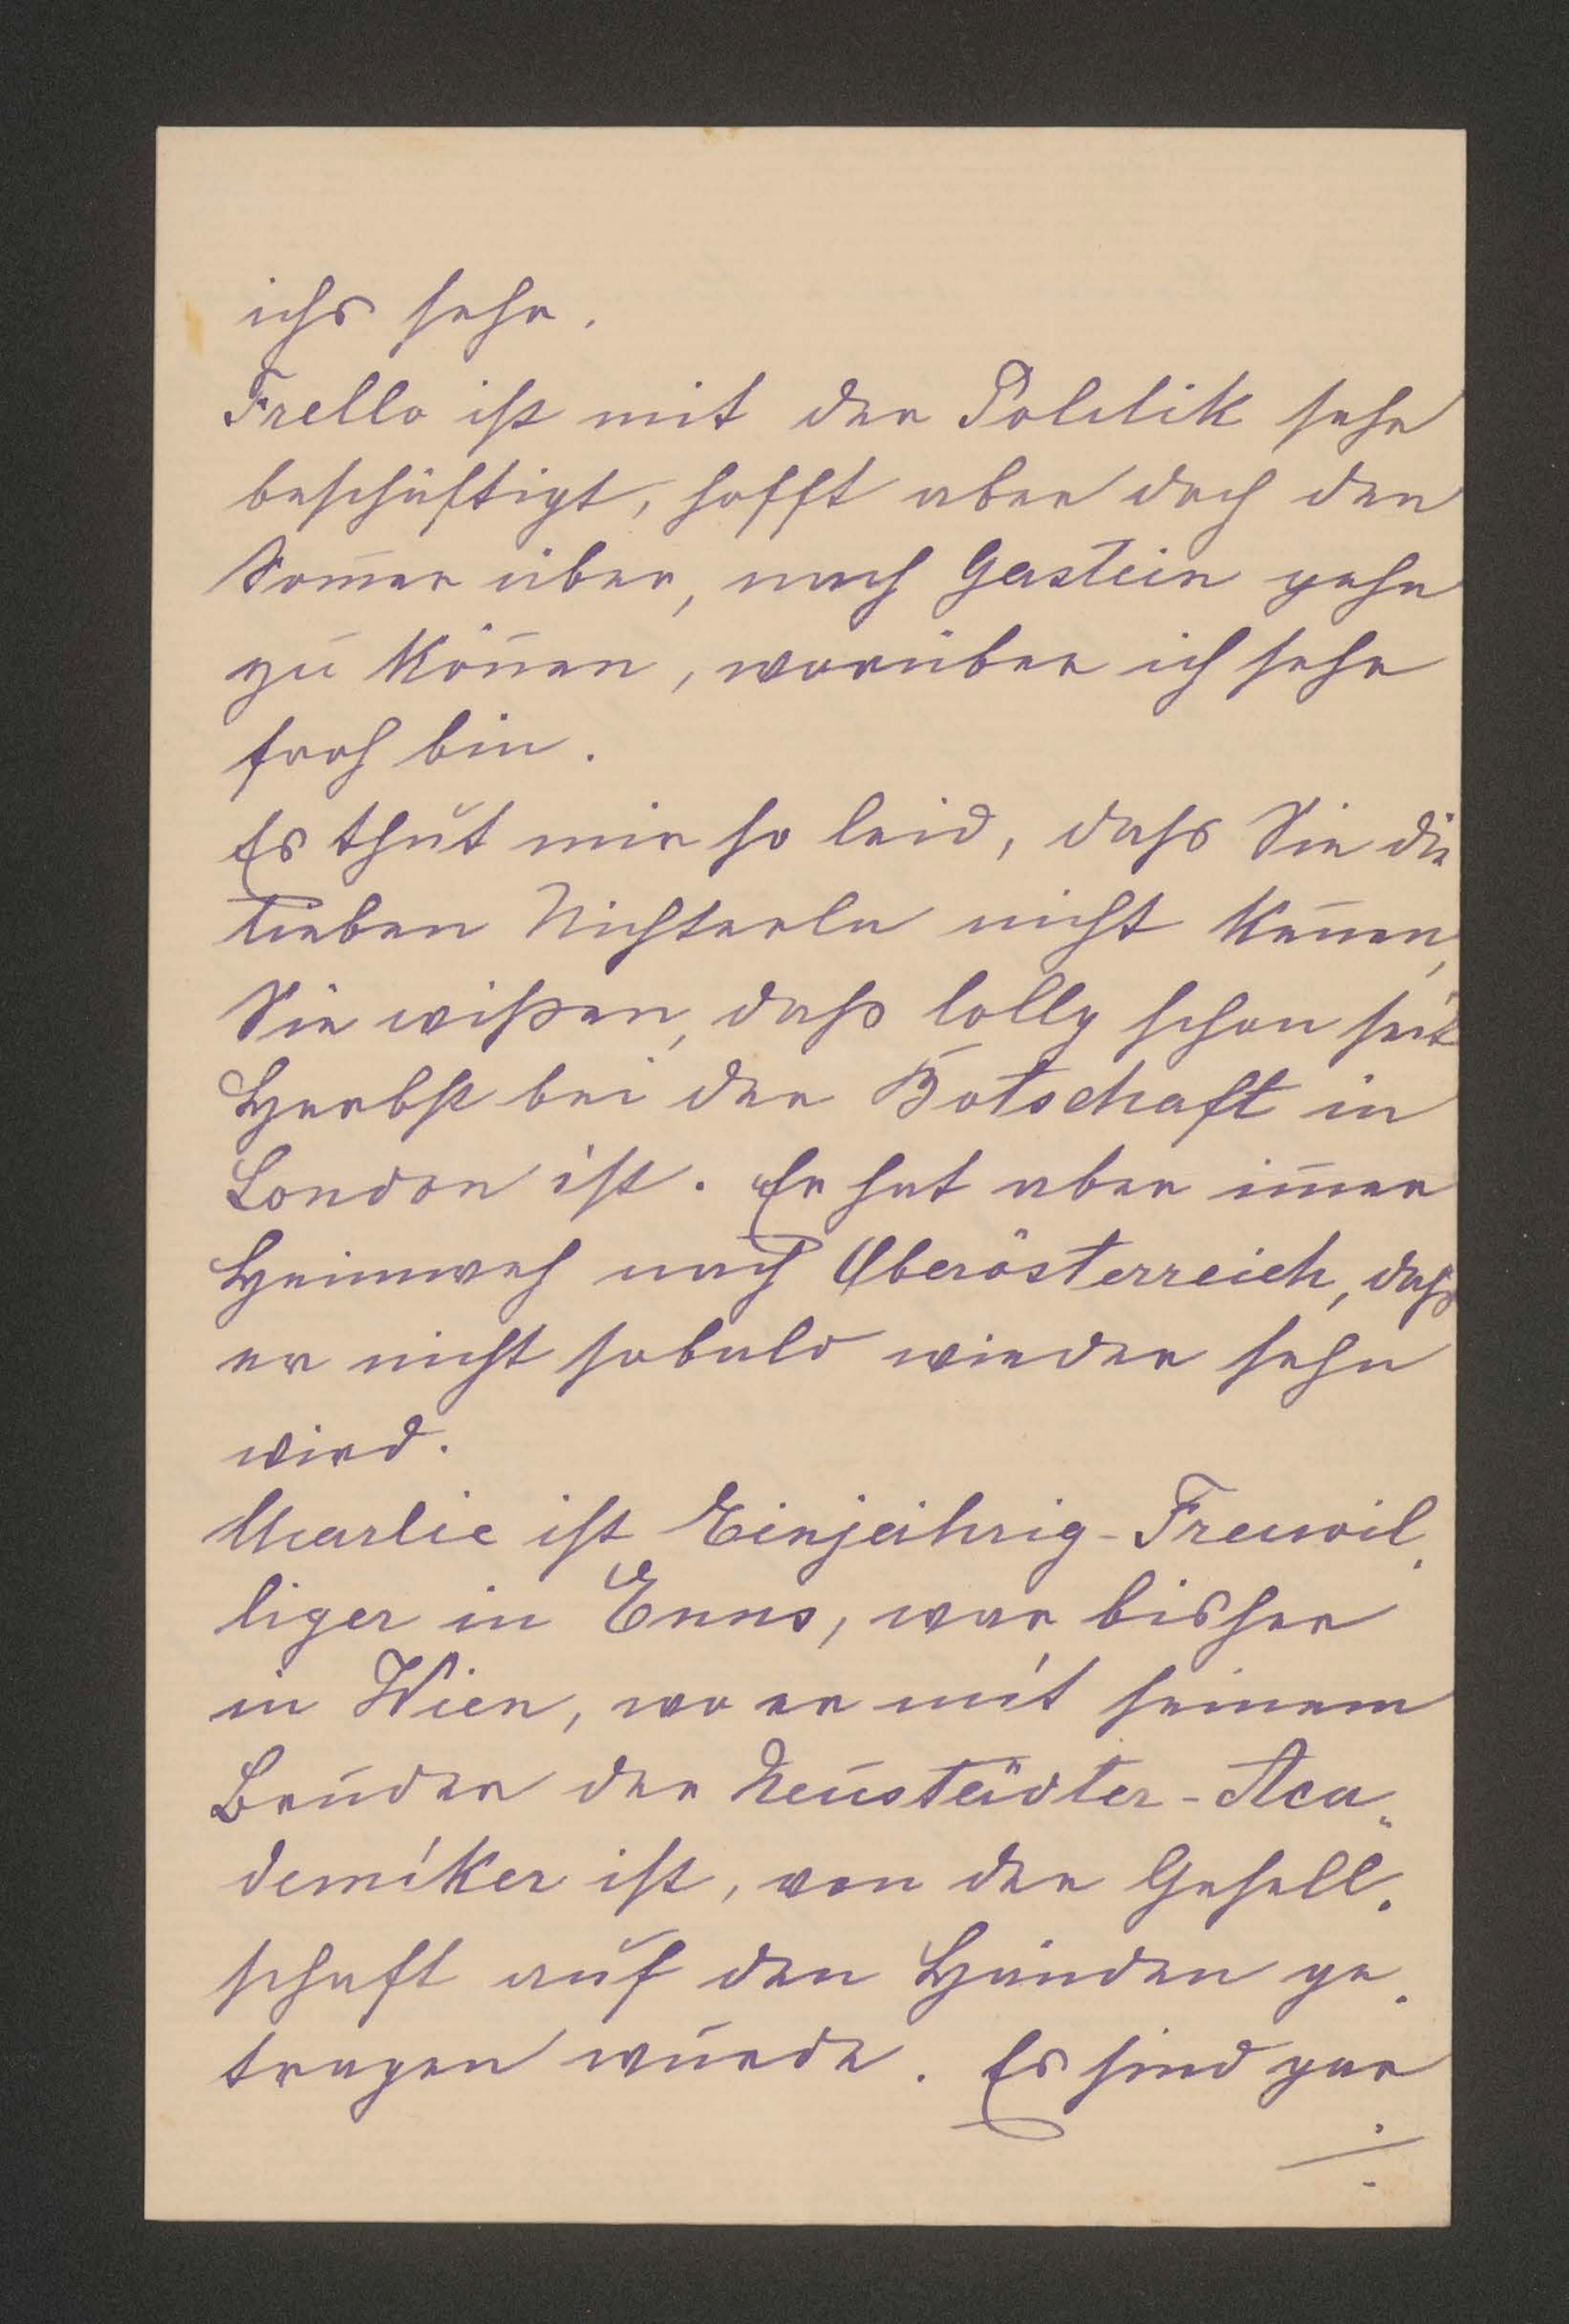 ichs sehe.
Frello ist mit der Politik sehr
beschäftigt, hofft aber doch den
Som̄er über, nach Gastein gehn
zu kön̄en, worüber ich sehr
froh bin.
Es thut mir so leid, daſs Sie die
lieben Nichterln nicht ken̄en,
Sie wißen, daß lolly schon seit
Herbst bei der Botschaft in
London ist. Er hat aber im̄er
Heimweh nach Oberösterreich, daß
er nicht sobald wieder sehn
wird.
Marlie ist Einjährig-Freiwil-
liger in Enns, war bisher
in Wien, wo er mit seinem
Bruder der Neustädter-Aca-
demiker ist, von der Gesell-
schaft auf den Händen ge-
tragen wurde. Es sind gar
./.